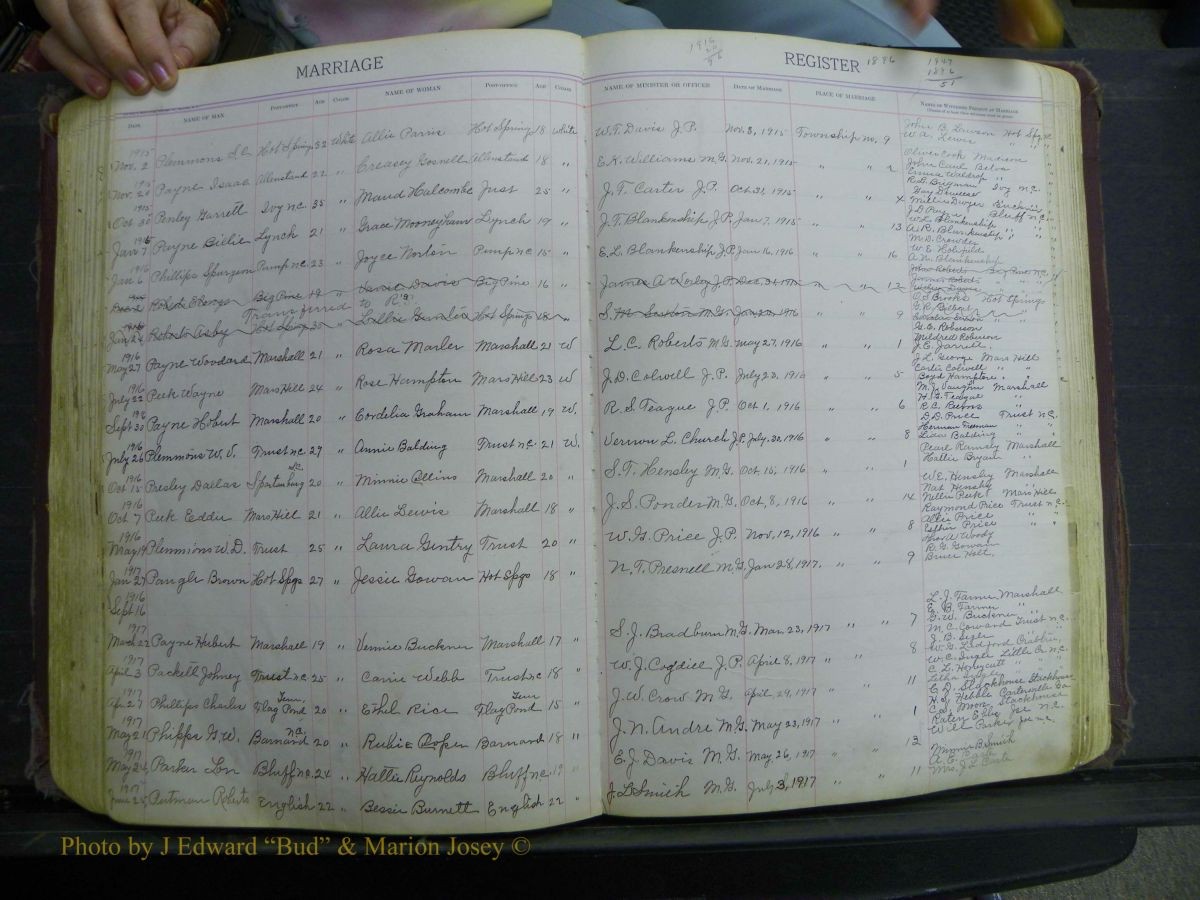 MARRIAGE REGISTER 1896
1916
1947
1896
51
DATE NAME OF MAN POST-OFFICE AGE COLOR NAME OF WOMAN POST-OFFICE AGE COLOR NAME OF MINISTER OR OFFICER DATE OF MARRIAGE PLACE OF MARRIAGE NAME OF WITNESS PRESENT AT MARRIAGE
1915 Nov. 2 Plemmons Hot Springs 32 White Allie Parris Hot Springs 18 White W.T. Davis J.P. Nov. 3, 1915 Township No. 9 John B. Lawson Hot Spgs
W.A. Lewis " "
1915 Nov. 20 Payne Isaac Allenstand 22 " Creasey Gosnell Allenstand 18 " E.K. Williams M.G. Nov. 21, 1915 " " 2 Oliver Cook Madison
John Caul Belva
Emma Waldrop " "
1915 Oct 30 Penley Garrett Ivy N.C. 35 " Maud Halcombe Just 25 " J.F. Carter J.P. Oct. 31, 1915 " " 4 R.G. Brigman Ivy N.C.
1915 Jan 7 Payne Billie Lynch 21 " Grace Mooneyham Lynch 19 " J.T. Blankenship J.P. Jan 7, 1915 " " 13 J.D. Payne Bluff N.C.
W.L. Blankenship " "
A.R. Blankenship " "
1916 Jan 6 Phillips Spurgeon Pump N.C. 23 " Joyce Norton Pump N.C. 15 " E.L. Blankenship J.P. Jan 16, 1916 " " 16 M.D. Crowder
A.N. Blankenship
Roberts Big Pine 19 " Davis Big Pine 16 " James A Worley J.P. Dec. " " 12 John Roberts Big Pine N.C.
James Roberts
Transferred to "R's"
1916 Jan 22 Roberts Asby Hot Springs " Lillie Hot Springs 18 " S.M. Saxton M.G. 1916 " " 9 O.S. Brooks Hot Springs
1916 May 27 Payne Woodard Marshall 21 " Rosa Marler Marshall 21 W L.C. Roberts M.G. May 27, 1916 " " 1 G.C. Roberson
Mildred Roberson
J.E. Jarrell
1916 July 22 Peek Wayne Mars Hill 24 " Rose Hampton Mars Hill 23 W J.D. Colwell J.P. July 23, 1916 " " 5 J.L. George Mars Hill
Carlie Colwell " "
Boyd Hampton " "
1916 Sept 30 Payne Hobert Marshall 20 " Cordelia Graham Marshall 19 W. R.S. Teague J.P. Oct. 1, 1916 " " 6 M.J. Vaughn Marshall
H.G. Teague "
R.C. Burns "
1916 July 26 Plemmons W.V. Trust N.C. 29 " Annie Balding Trust N.C. 21 W. Vernon L. Church J.P. July 30, 1916 " " 8 D.D. Price Trust N.C.
Herman Freeman "
Lida Balding "
1916 Oct 15 Presley Dallas Spartanburg S.C. 20 " Minnie Collins Marshall 20 " S.T. Hensley M.G. Oct 15, 1916 " " 1 Pearl Ramsey Marshall
Hattie Bryant "
1916 Oct 7 Peek Eddie Mars Hill 21 " Allie Lewis Marshall 18 " J.S. Ponder M.G. Oct, 8, 1916 " " 14 W.E. Hensley Marshall
Nat Hensley "
Nellie Peek Mars Hill
1916 May 19 Plemmons W.D. Trust 25 " Laura Gentry Trust 20 " W.G. Price J.P. Nov. 12, 1916 " " 8 Raymond Price Trust N.C.
Allie Price "
Esther Price "
1917 Jan 27 Paugh Brown Hot Spgs 27 " Jessie Gowan Hot Spgs 18 " N.T. Presnell M.G. Jan 28, 1917. " " 9 Woody
R.G. Gowan
Bruce Holt.
1916 Sept 16
1917 March 22 Payne Hubert Marshall 19 " Vernie Buckner Marshall 17 " S.J. Bradburn M.G. Mar. 23, 1917 " " 7 L.J. Farmer Marshall
E.B. Farmer "
G.W. Buckner "
1917 April 3 Packett Johney Trust N.C. 25 " Carrie Webb Trust N.C. 18 " W.J. Cogdill J.P. April 8, 1917 " " 8 M.C. Coward Trust N.C.
J.B. Sigler "
1917 Apr 27 Phillips Charles Flag Pond Tenn 20 " Ethel Rice Flag Pond Tenn 15 " J.W. Crow M.G. April 29, 1917 " " 11 W.C. Ingle Little Cr. N.C.
C.L. Honeycutt " "
1917 May 21 Phipps G.W. Barnard N.C. 20 " Barnard 18 " J.N. Andre M.G. May 23, 1917 " " 1 E.D. Stackhouse Stackhouse
1917 May 24 Parker Lon Bluff N.C. 24 " Hattie Reynolds Bluff N.C. 19 " E.J. Davis M.G. May 26, 1917 " " 12 Will Parker
1917 June Putman Roberts English 22 " Bessie Burnett English 22 " J.L. Smith M.G. July 3, 1917 " " 11 Minnie B Smith
Mrs. J.L.
Photo by J Edward "Bud" & Marion Josey ©